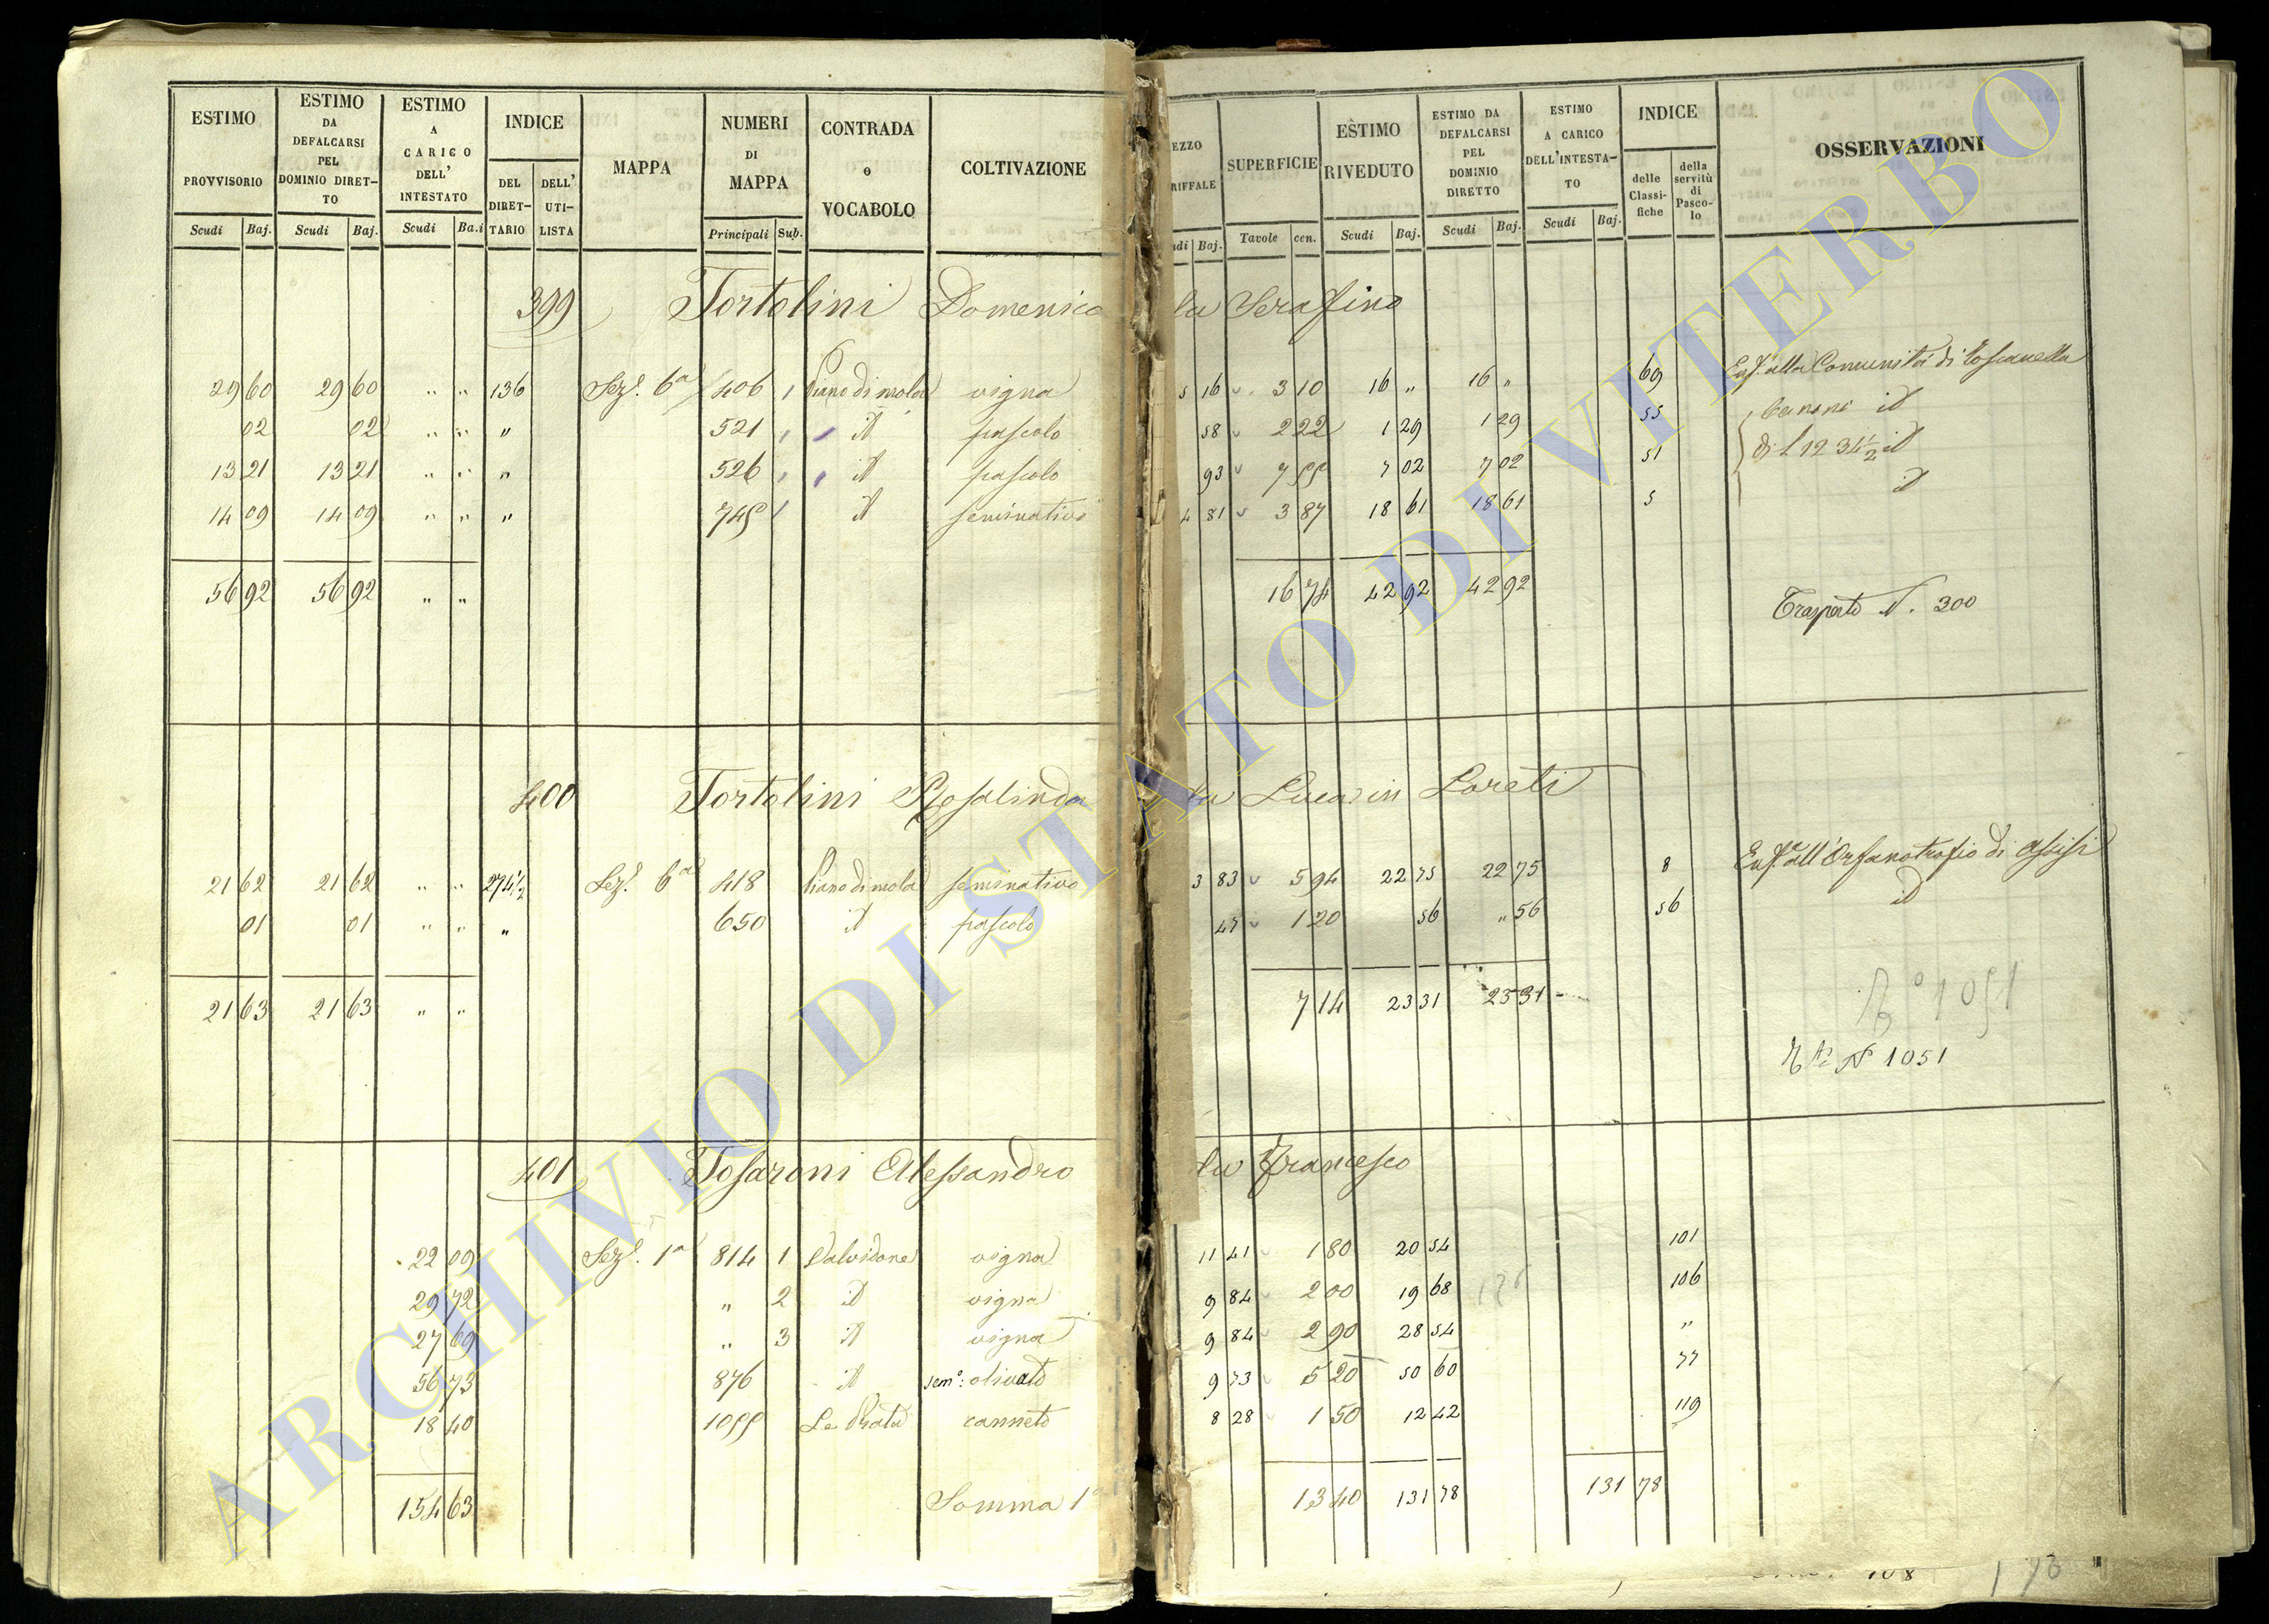 ESTIMO PROVVISORIO Scudi Baj.
ESTIMO DA DEFALCARSI PEL DOMINIO DIRETTO Scudi Baj.
ESTIMO A CARICO DELL' INTESTATO Scudi Ba.i
INDICE DEL DIRETTARIO DELL' UTILISTA
MAPPA
NUMERI DI MAPPA Principali Sub.
CONTRADA o VOCABOLO
COLTIVAZIONE
EZZO RIFFALE udi Baj.
SUPERFICIE Tavole cen.
ESTIMO RIVEDUTO Scudi Baj.
ESTIMO DA DEFALCARSI PEL DOMINIO DIRETTO Scudi Baj.
ESTIMO A CARICO DELL'INTESTATO Scudi Baj.
INDICE delle Classifiche della servitù di Pascolo
OSSERVAZIONI
399 Tortolini Domenico la Serafino
29 60 29 60 " " 136 Sez. 6a 406 1 Piano di mola vigna 5 16 3 10 16 " 16 " 69 Enf. alla Comunità di Toscanella
02 02 " " " 521 id pascolo 58 2 22 1 29 1 29 55 Canone id
13 21 13 21 " " " 526 id pascolo 93 7 55 7 02 7 02 51 di l 12 34 1/2 id
14 09 14 09 " " " 745 id seminativo 4 81 3 87 18 61 18 61 5 id
56 92 56 92 " " 16 74 42 92 42 92
Trasporto N. 300
400 Tortolini Rosalinda la Luca in Loreti
21 62 21 62 " " 274 1/2 Sez. 6a 418 Piano di mola seminativo 3 83 5 94 22 75 22 75 8 Enf.a all'Orfanotrofio di Assisi
01 01 " " " 650 id pascolo 47 1 20 56 " 56 56 id
21 63 21 63 " " 7 14 23 31 23 31
1051
N 1051
401 Tosaroni Alessandro la Francesco
22 09 Sez. 1a 814 1 Valvidone vigna 11 41 1 80 20 54 101
29 72 " 2 id vigna 9 84 2 00 19 68 106
27 69 " 3 id vigna 9 84 2 90 28 54 "
56 73 876 id sem.o olivato 9 73 5 20 50 60 77
18 40 1055 Le Prata canneto 8 28 1 50 12 42 119
154 63 Somma 1a 13 40 131 78 131 78
108
ARCHIVIO DI STATO DI VITERBO